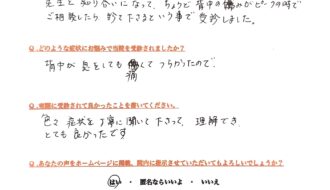 先生と知り合いになって、ちょうど背中の痛みがピークの時で
ご相談したら診て下さるという事で受診しました。
Q.どのような症状にお悩みで当院を受診されましたか?
背中が息をしても痛してつらかったので。
痛
Q.実際に受診されて良かったことを書いてください。
色々症状を丁寧に聞いて下さって、理解でき
とても良かったです
Q.あなたの声をホームページに掲載、院内に掲示させていただいてもよろしいでしょうか?
はい ・ 匿名ならいいよ ・ いいえ